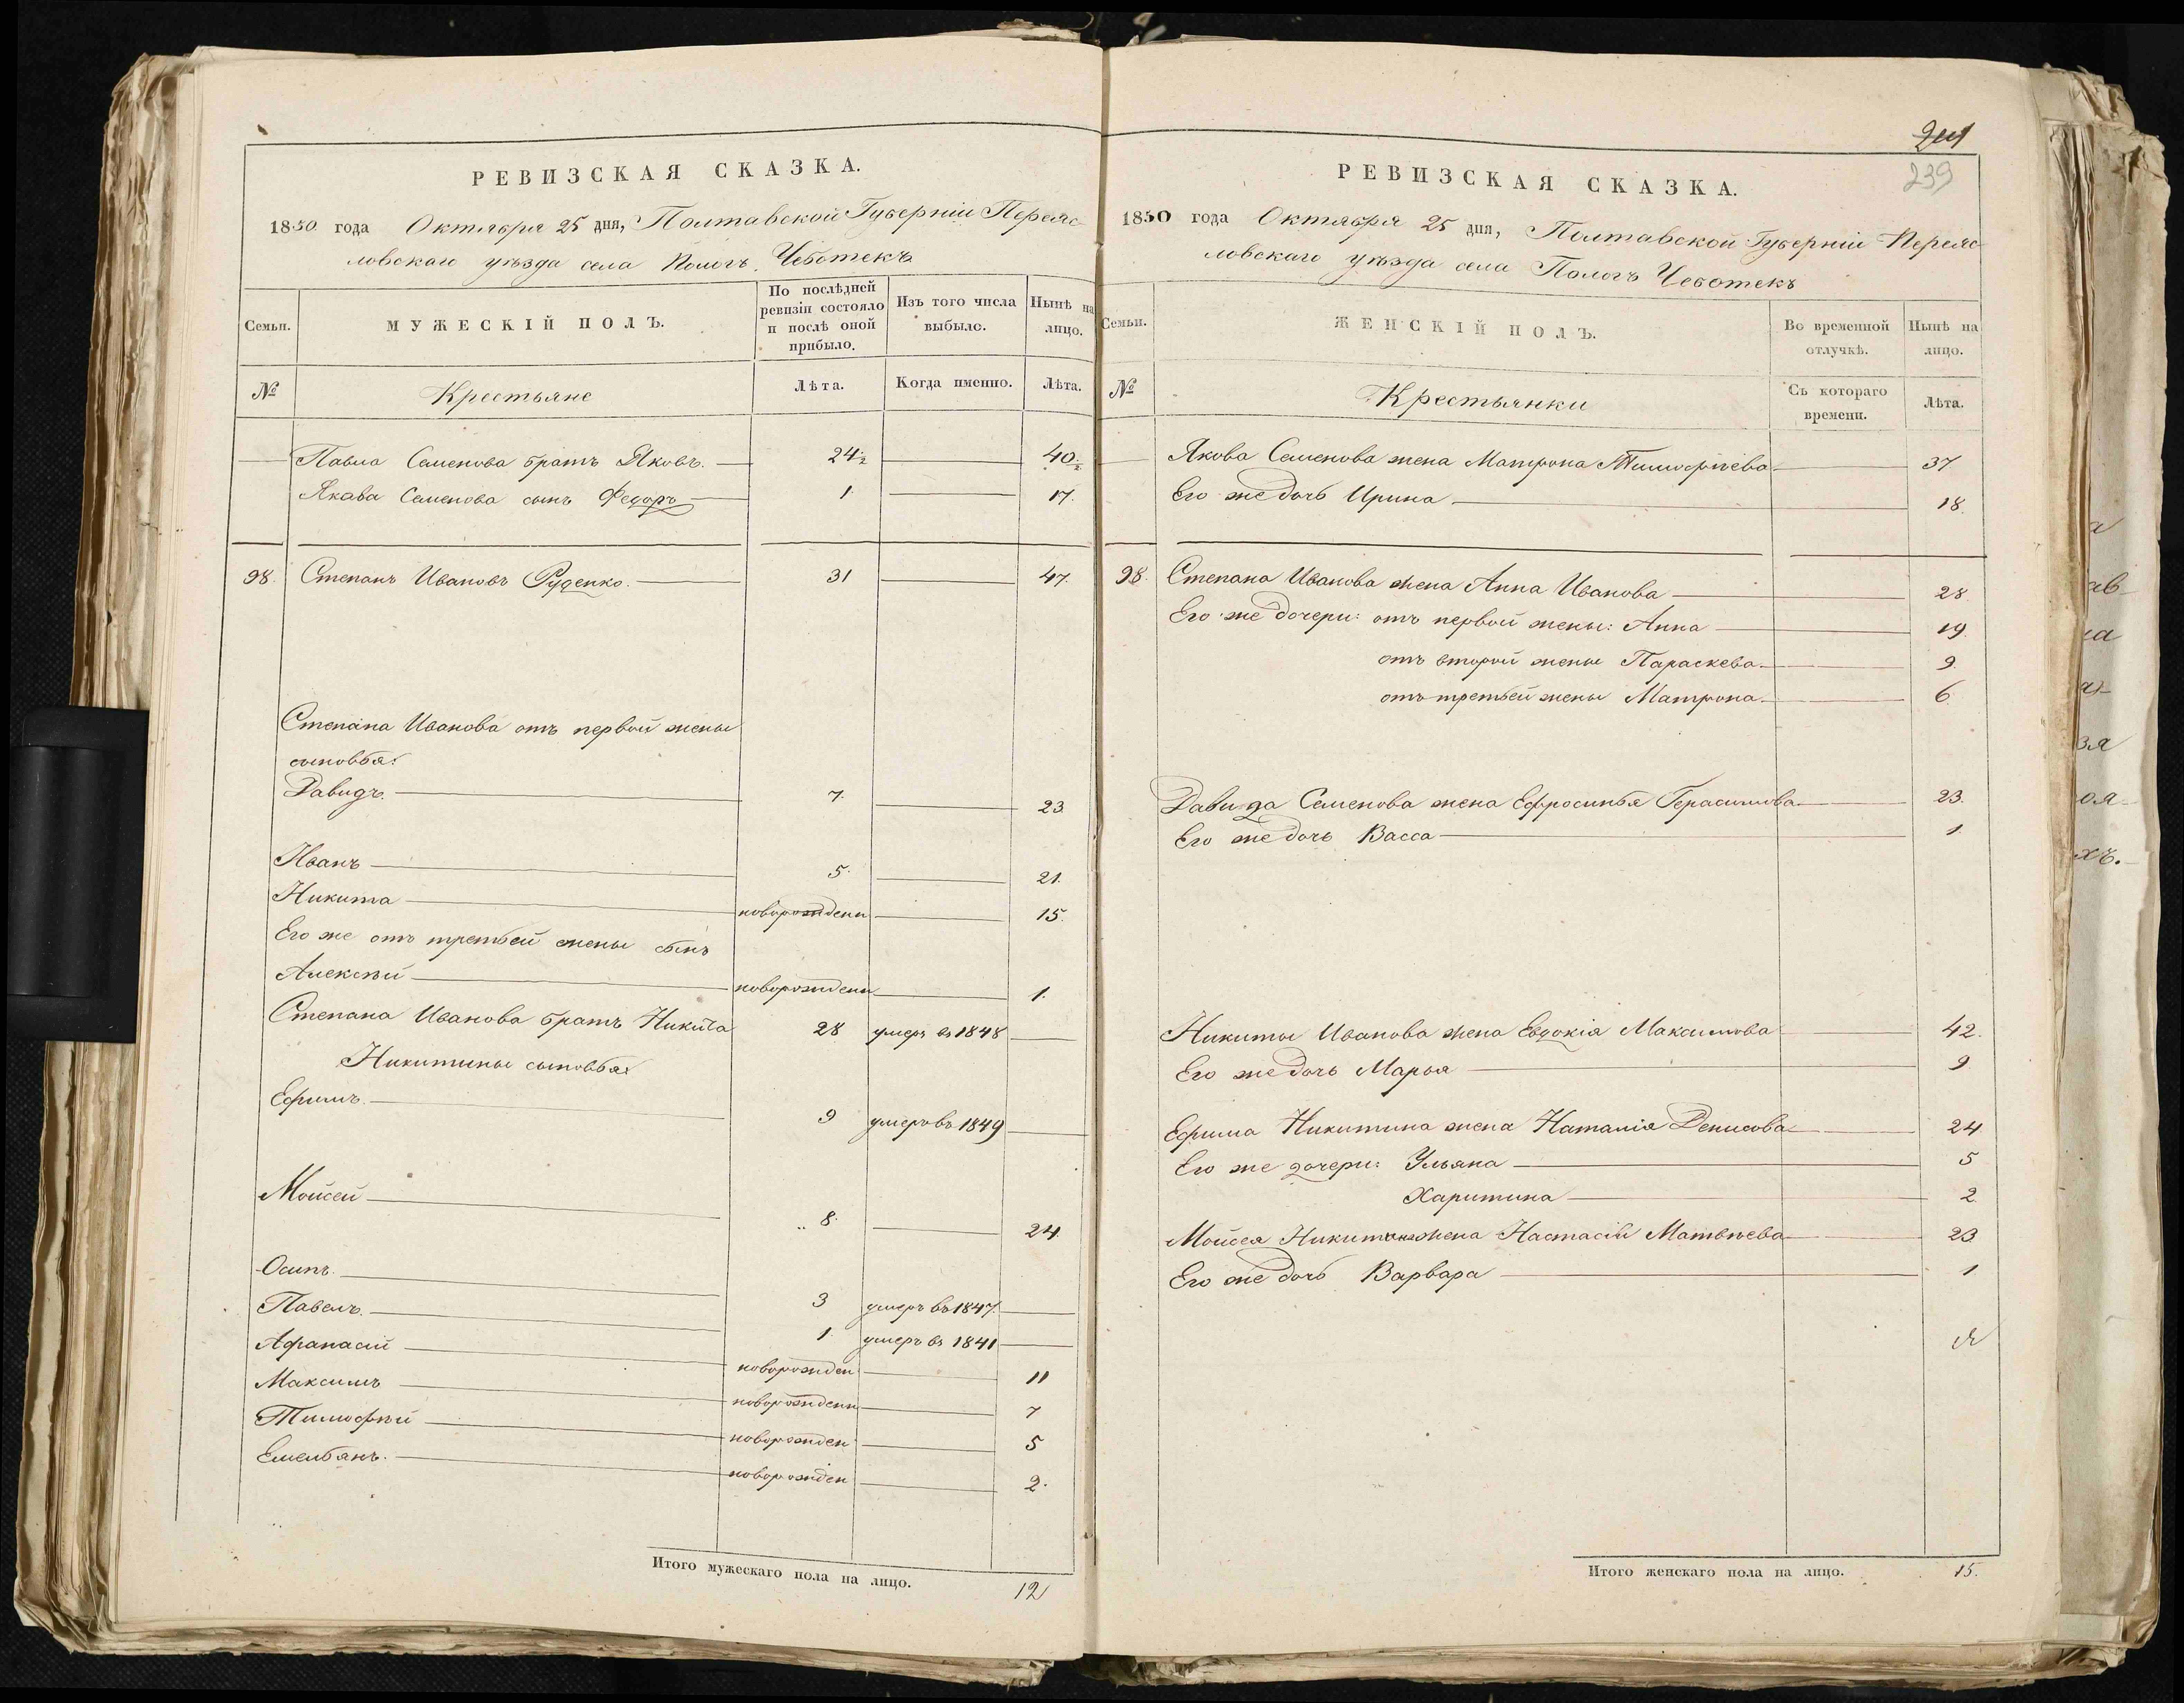 РЕВИЗСКАЯ СКАЗКА.
1850 года Октября 25 дня, Полтавской Губерніи Переяс
ловскаго уѣзда села Пологъ Чеботекъ
Семьи.
МУЖЕСКІЙ ПОЛЪ.
По послѣдней ревизіи состояло и послѣ оной прибыло.
Изъ того числа выбыло.
Нынѣ на лицо.
№ Крестьяне Лѣта. Когда именно. Лѣта.
Павла Семенова братъ Яковъ. 24½ 40½
Якова Семенова сынъ Федоръ 1. 17.
98. Степанъ Ивановъ Руденко. 31 47.
Степана Иванова отъ первой жены
сыновья:
Давидъ. 7. 23
Иванъ 5. 21.
Никита новорожденн 15.
Его же отъ третьей жены сынъ
Алексѣй новорожденн 1.
Степана Иванова братъ Никита 28 умеръ въ 1848
Никитины сыновья
Ефимъ. 9 умеръ въ 1849
Мойсей 8. 24.
Осипъ. 3 умеръ въ 1847.
Павелъ. 1. умеръ въ 1841
Афанасій новорожден 11
Максимъ новорожденн 7
Тимофѣй новорожден 5
Емельянъ. новорожден 2.
Итого мужескаго пола на лицо. 12
241
239
РЕВИЗСКАЯ СКАЗКА.
1850 года Октября 25 дня, Полтавской Губерніи Переяс
ловскаго уѣзда села Пологъ Чеботекъ
Семьи.
ЖЕНСКІЙ ПОЛЪ.
Во временной отлучкѣ.
Нынѣ на лицо.
№ Крестьянки Съ котораго времени. Лѣта.
Якова Семенова жена Матрона Тимофѣева 37
Его же дочь Ирина 18.
98. Степана Иванова жена Анна Иванова 28
Его же дочери: отъ первой жены: Анна 19.
отъ второй жены Параскева 9.
отъ третьей жены Матрона 6.
Давида Семенова жена Ефросинья Герасимова 23.
Его же дочь Васса 1.
Никиты Иванова жена Евдокія Максимова 42.
Его же дочь Марья 9
Ефима Никитина жена Наталія Денисова 24
Его же дочери: Ульяна 5
Харитина 2.
Мойсея Никитина жена Настасія Матвѣева 23
Его же дочь Варвара 1
Итого женскаго пола на лицо. 15.